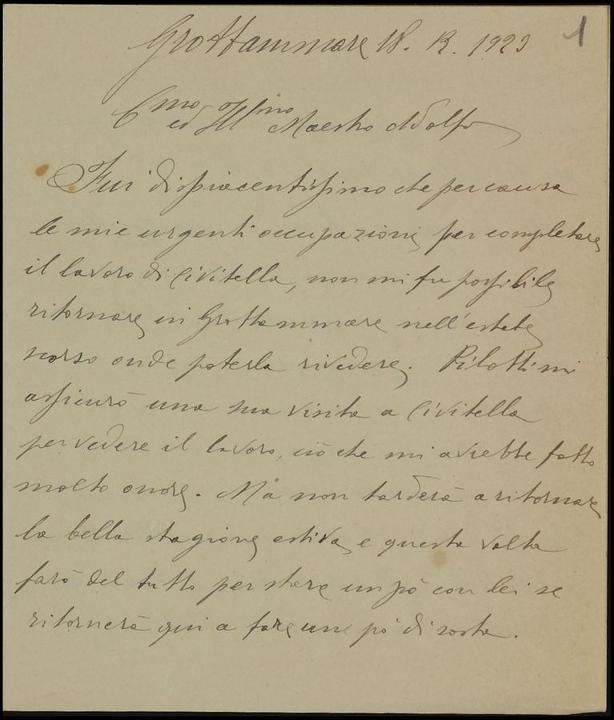 1
Grottammare 18. 12. 1923
C.mo ed Ill.mo Maestro Adolfo
Fui dispiacentissimo che per causa
le mie urgenti occupazioni per completare
il lavoro di Civitella, non mi fu possibile
ritornare in Grottammare nell'estate
scorso onde poterla rivedere. Pilotti mi
assicurò una sua visita a Civitella
per vedere il lavoro, ciò che mi avrebbe fatto
molto onore. Ma non tarderà a ritornare
la bella stagione estiva, e questa volta
farò del tutto per stare un pò con lei se
ritornerà qui a fare un pò di sosta.